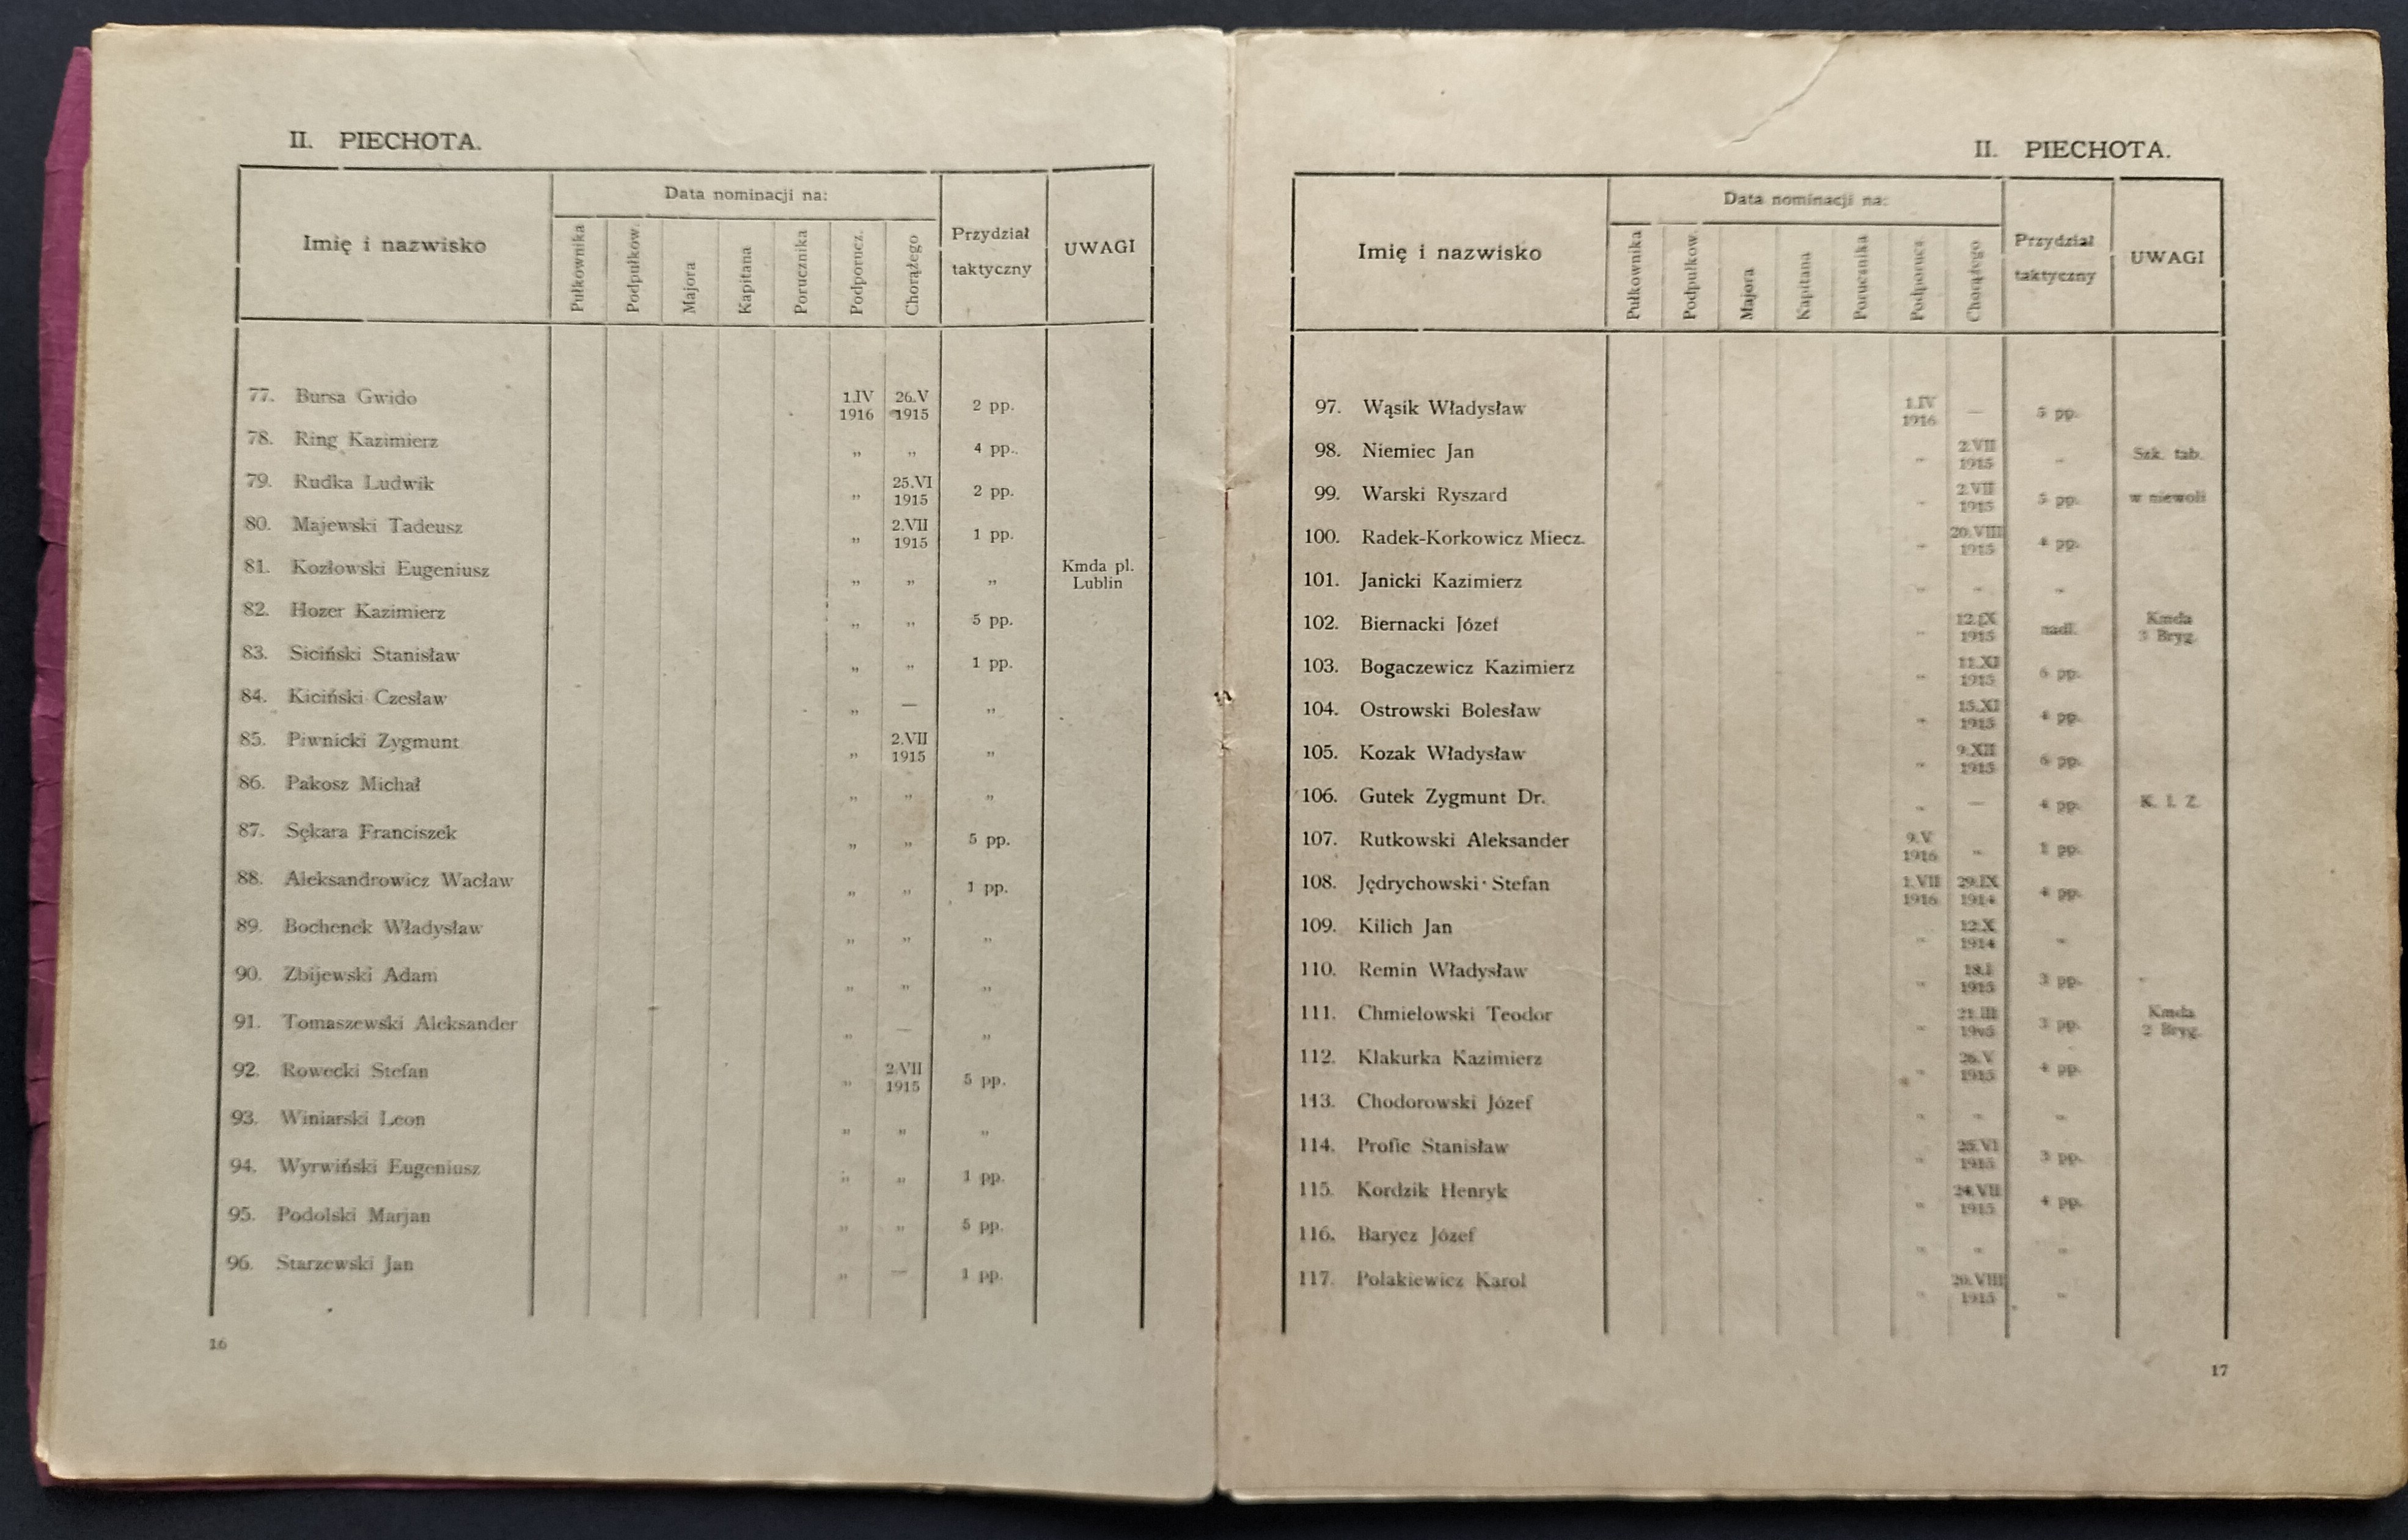 II. PIECHOTA.
Imię i nazwisko
Data nominacji na:
Pułkownika
Podpułkow.
Majora
Kapitana
Porucznika
Podporucz.
Chorążego
Przydział
taktyczny
UWAGI
77. Bursa Gwido 1.IV 1916 26.V 1915 2 pp.
78. Ring Kazimierz „ „ 4 pp.
79. Rudka Ludwik „ 25.VI 1915 2 pp.
80. Majewski Tadeusz „ 2.VII 1915 1 pp.
81. Kozłowski Eugeniusz „ „ „ Kmda pl. Lublin
82. Hozer Kazimierz „ „ 5 pp.
83. Siciński Stanisław „ „ 1 pp.
84. Kiciński Czesław „ — „
85. Piwnicki Zygmunt „ 2.VII 1915 „
86. Pakosz Michał „ „ „
87. Sękara Franciszek „ „ 5 pp.
88. Aleksandrowicz Wacław „ „ 1 pp.
89. Bochenek Władysław „ „ „
90. Zbijewski Adam „ „ „
91. Tomaszewski Aleksander „ — „
92. Rowecki Stefan „ 2.VII 1915 5 pp.
93. Winiarski Leon „ „ „
94. Wyrwiński Eugeniusz „ „ 1 pp.
95. Podolski Marjan „ „ 5 pp.
96. Starzewski Jan „ — 1 pp.
16
II. PIECHOTA.
Imię i nazwisko
Data nominacji na:
Pułkownika
Podpułkow.
Majora
Kapitana
Porucznika
Podporucz.
Chorążego
Przydział
taktyczny
UWAGI
97. Wąsik Władysław 1.IV 1916 — 5 pp.
98. Niemiec Jan „ 2.VII 1915 „ Szk. tab.
99. Warski Ryszard „ 2.VII 1915 5 pp. w niewoli
100. Radek-Korkowicz Miecz. „ 20.VIII 1915 4 pp.
101. Janicki Kazimierz „ „ „
102. Biernacki Józef „ 12.IX 1915 nadl. Kmda 3 Bryg.
103. Bogaczewicz Kazimierz „ 11.XI 1915 6 pp.
104. Ostrowski Bolesław „ 15.XI 1915 4 pp.
105. Kozak Władysław „ 9.XII 1915 6 pp.
106. Gutek Zygmunt Dr. „ — 4 pp. K. I. Z.
107. Rutkowski Aleksander 9.V 1916 „ 1 pp.
108. Jędrychowski Stefan 1.VII 1916 29.IX 1914 4 pp.
109. Kilich Jan „ 12.X 1914 „
110. Remin Władysław „ 18.I 1915 3 pp.
111. Chmielowski Teodor „ 21.III 3 pp. Kmda 2 Bryg.
112. Klakurka Kazimierz „ 26.V 1915 4 pp.
113. Chodorowski Józef „ „ „
114. Profic Stanisław „ 25.VI 1915 3 pp.
115. Kordzik Henryk „ 24.VII 1915 4 pp.
116. Barycz Józef „ „ „
117. Polakiewicz Karol „ 20.VIII 1915 „
17